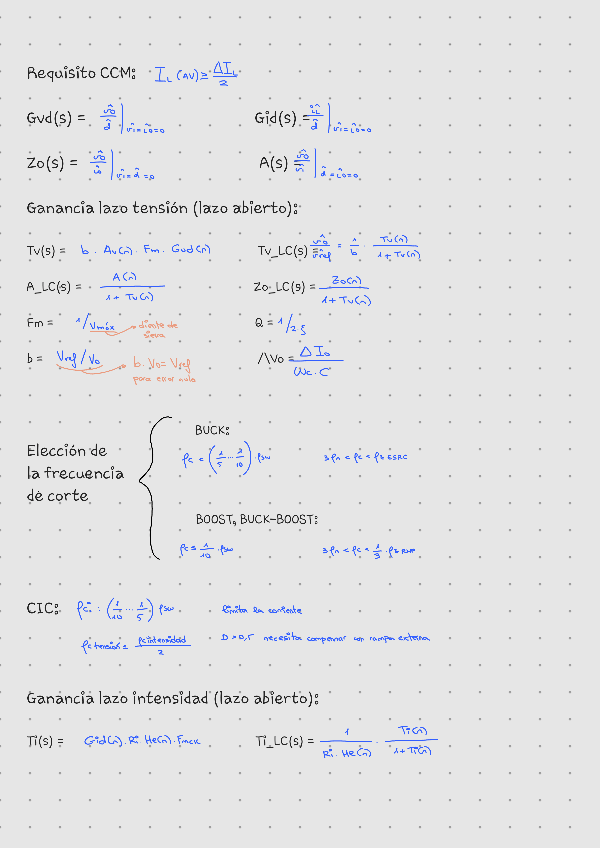 Requisito CCM: I_L (AV) ≥ ΔI_L / 2
Gvd(s) = v̂o / d̂ | v̂i = îo = 0
Gid(s) = îL / d̂ | v̂i = îo = 0
Zo(s) = v̂o / îo | v̂i = d̂ = 0
A(s) = v̂o / v̂i | d̂ = îo = 0
Ganancia lazo tensión (lazo abierto):
Tv(s) = b · Av(s) · Fm · Gvd(s)
Tv_LC(s) = v̂o / v̂ref = 1/b · Tv(s) / 1 + Tv(s)
A_LC(s) = A(s) / 1 + Tv(s)
Zo_LC(s) = Zo(s) / 1 + Tv(s)
Fm = 1/Vmáx → diente de sierra
Q = 1/2ξ
b = Vref / Vo → b · Vo = Vref
para error nulo
/\Vo = ΔIo / ωc · C
Elección de
la frecuencia
de corte
BUCK:
fc < (1/5 ... 1/10) · fsw
3fn < fc < fz ESRC
BOOST, BUCK-BOOST:
fc ≤ 1/10 · fsw
3fn < fc < 1/3 · fz RHP
CIC: fci : (1/10 ... 1/5) fsw
limita la corriente
fc tensión ≤ fc intensidad / 2
D > 0,5 necesita compensar con rampa externa
Ganancia lazo intensidad (lazo abierto):
Ti(s) = Gid(s) · Ri · He(s) · Fmck
Ti_LC(s) = 1 / Ri · He(s) · Ti(s) / 1 + Ti(s)